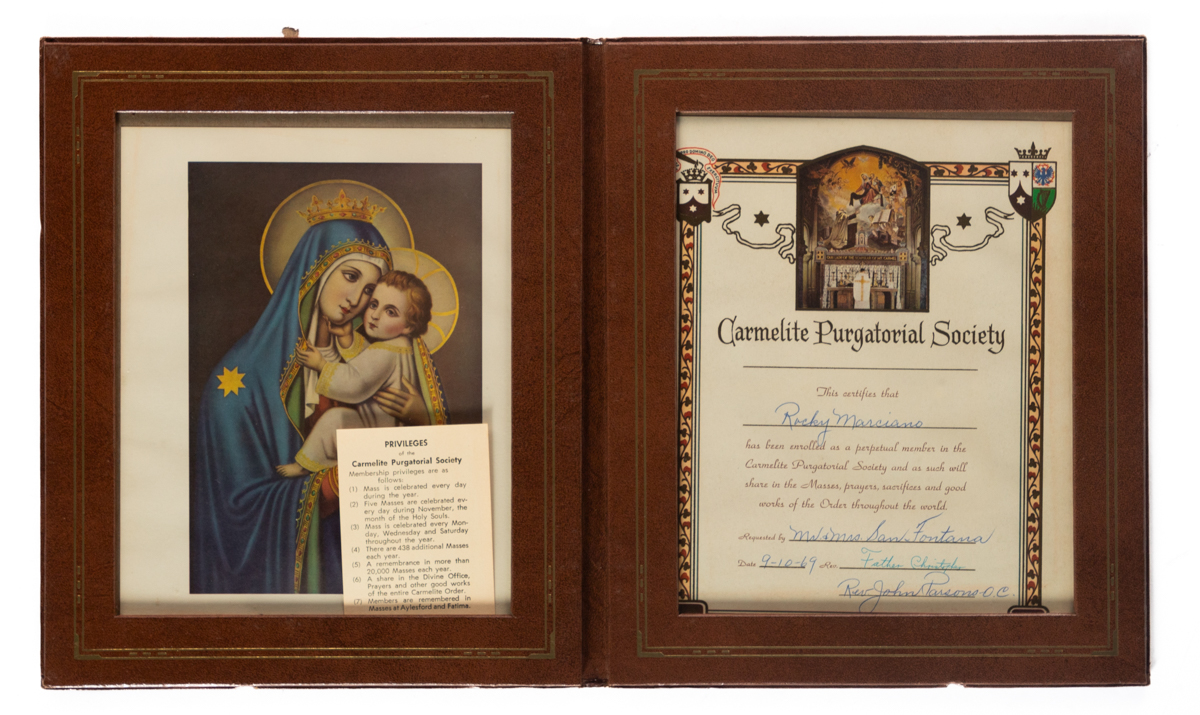 PRIVILEGES
of the
Carmelite Purgatorial Society
Membership privileges are as
follows:
(1) Mass is celebrated every day
during the year.
(2) Five Masses are celebrated ev-
ery day during November, the
month of the Holy Souls.
(3) Mass is celebrated every Mon-
day, Wednesday and Saturday
throughout the year.
(4) There are 438 additional Masses
each year.
(5) A remembrance in more than
20,000 Masses each year.
(6) A share in the Divine Office,
Prayers and other good works
of the entire Carmelite Order.
(7) Members are remembered in
Masses at Aylesford and Fatima.
Carmelite Purgatorial Society
This certifies that
Rocky Marciano
has been enrolled as a perpetual member in the
Carmelite Purgatorial Society and as such will
share in the Masses, prayers, sacrifices and good
works of the Order throughout the world.
Requested by Mr & Mrs San Fontana
Date 9-10-69 Rev. Father
Rev John Parsons O.C.